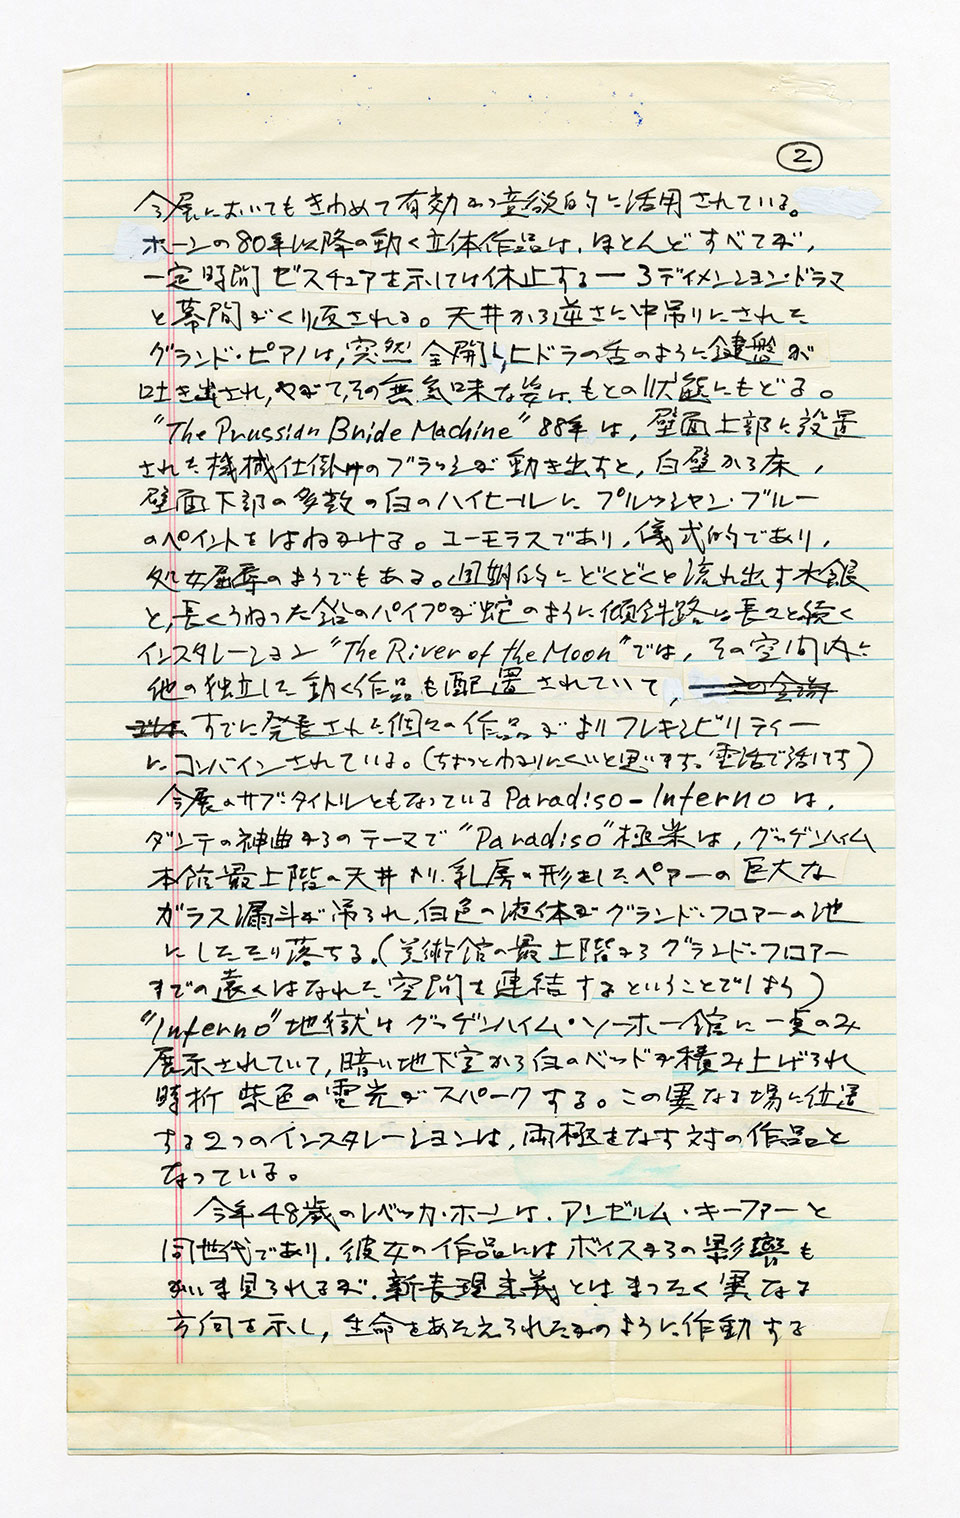 ②
今展においてもきわめて有効かつ意欲的に活用されている。
ホーンの80年以降の動く立体作品は、ほとんどすべてが、
一定時間ゼスチュアを示しては休止する ー 3ディメンション・ドラマ
と幕間がくり返される。天井から逆さに中吊りにされた
グランド・ピアノは、突然全開し、ヒドラの舌のように鍵盤が
吐き出され、やがて、その無気味な姿は、もとの状態にもどる。
"The Prussian Bride Machine" 88年は、壁面上部に設置
された機械仕掛けのブラッシが動き出すと、白壁から床、
壁面下部の多数の白のハイヒールに プルッシャン・ブルー
のペイントをはねかける。ユーモラスであり、儀式的であり、
処女屈辱のようでもある。周期的にどくどくと流れ出す水銀
と、長くうねった鉛のパイプが蛇のように傾斜路に長々と続く
インスタレーション "The River of the Moon" では、その空間内に
他の独立した動く作品も配置されていて、
すでに発表された個々の作品がよりフレキシビリティー
にコンバインされている。(ちょっとわかりにくいと思います。電話で話します)
今展のサブ・タイトルともなっている Paradiso-Inferno は、
ダンテの神曲からのテーマで "Paradiso" 極楽は、グッゲンハイム
本館最上階の天井より、乳房の形をしたペアーの巨大な
ガラス漏斗が吊られ、白色の液体がグランド・フロアーの池
にしたたり落ちる。(美術館の最上階からグランド・フロアー
までの遠くはなれた空間を連結するということでしょう)
"Inferno" 地獄はグッゲンハイム・ソーホー館に一点のみ
展示されていて、暗い地下室から白のベッドが積み上げられ
時折 紫色の電光がスパークする。この異なる場に位置
する2つのインスタレーションは、両極をなす対の作品と
なっている。
今年48歳のレベッカ・ホーンは、アンゼルム・キーファーと
同世代であり、彼女の作品にはボイスからの影響も
かいま見られるが、新表現主義とはまったく異なる
方向を示し、生命をあたえられたかのように作動する